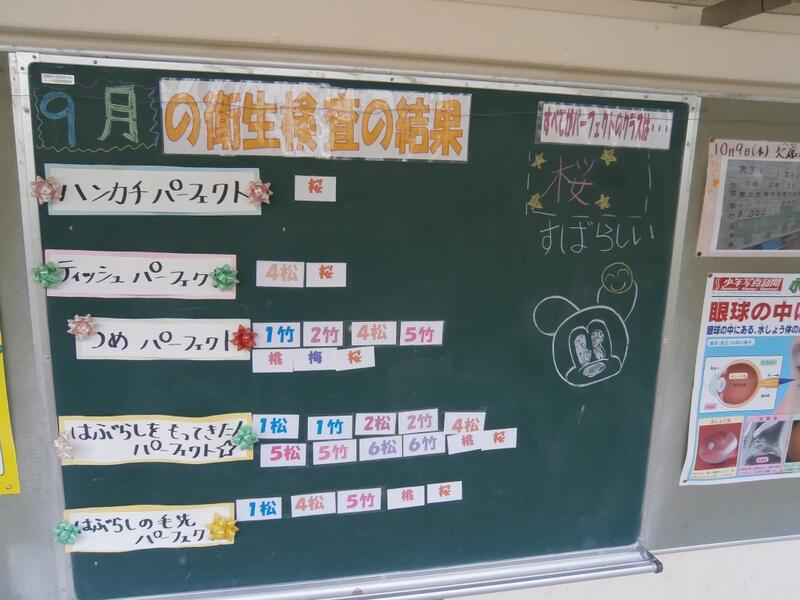 9月の衛生検査の結果
すべてがパーフェクトのクラスは・・・
桜
すばらしい
ハンカチパーフェクト
桜
ティッシュパーフェク
4松 桜
つめ パーフェクト
1竹 2竹 4松 5竹
桃 梅 桜
はぶらしをもってきた!
パーフェクト☆
1松 1竹 2松 2竹 4松
5松 5竹 6松 6竹 桃 桜
はぶらしの毛先
パーフェク
1松 4松 5竹 桃 桜
10月9日(木)
少年写真新聞
眼球の中に
眼球の中にある、水しょう体の